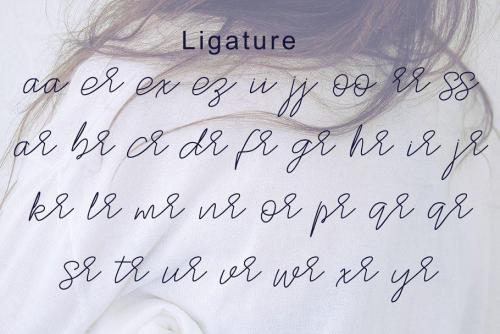 Ligature
aa er ex ez ii jj oo rr ss
ar br cr dr fr gr hr ir jr
kr lr mr nr or pr qr qr
sr tr ur vr wr xr yr